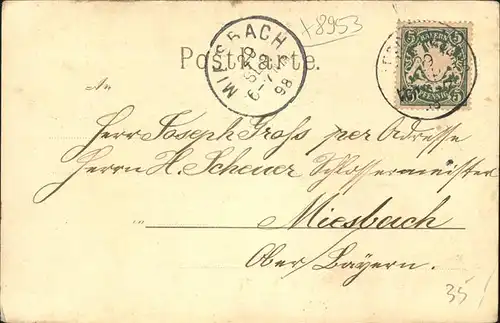 +8953
MIESBACH
SEP
6-7
98
BAYERN
5 5
PFENNIG
Postkarte.
An
Herrn Joseph Groß per Adresse
Herrn H. Scheuer Schlossermeister
in Miesbach
Ober Bayern.
35